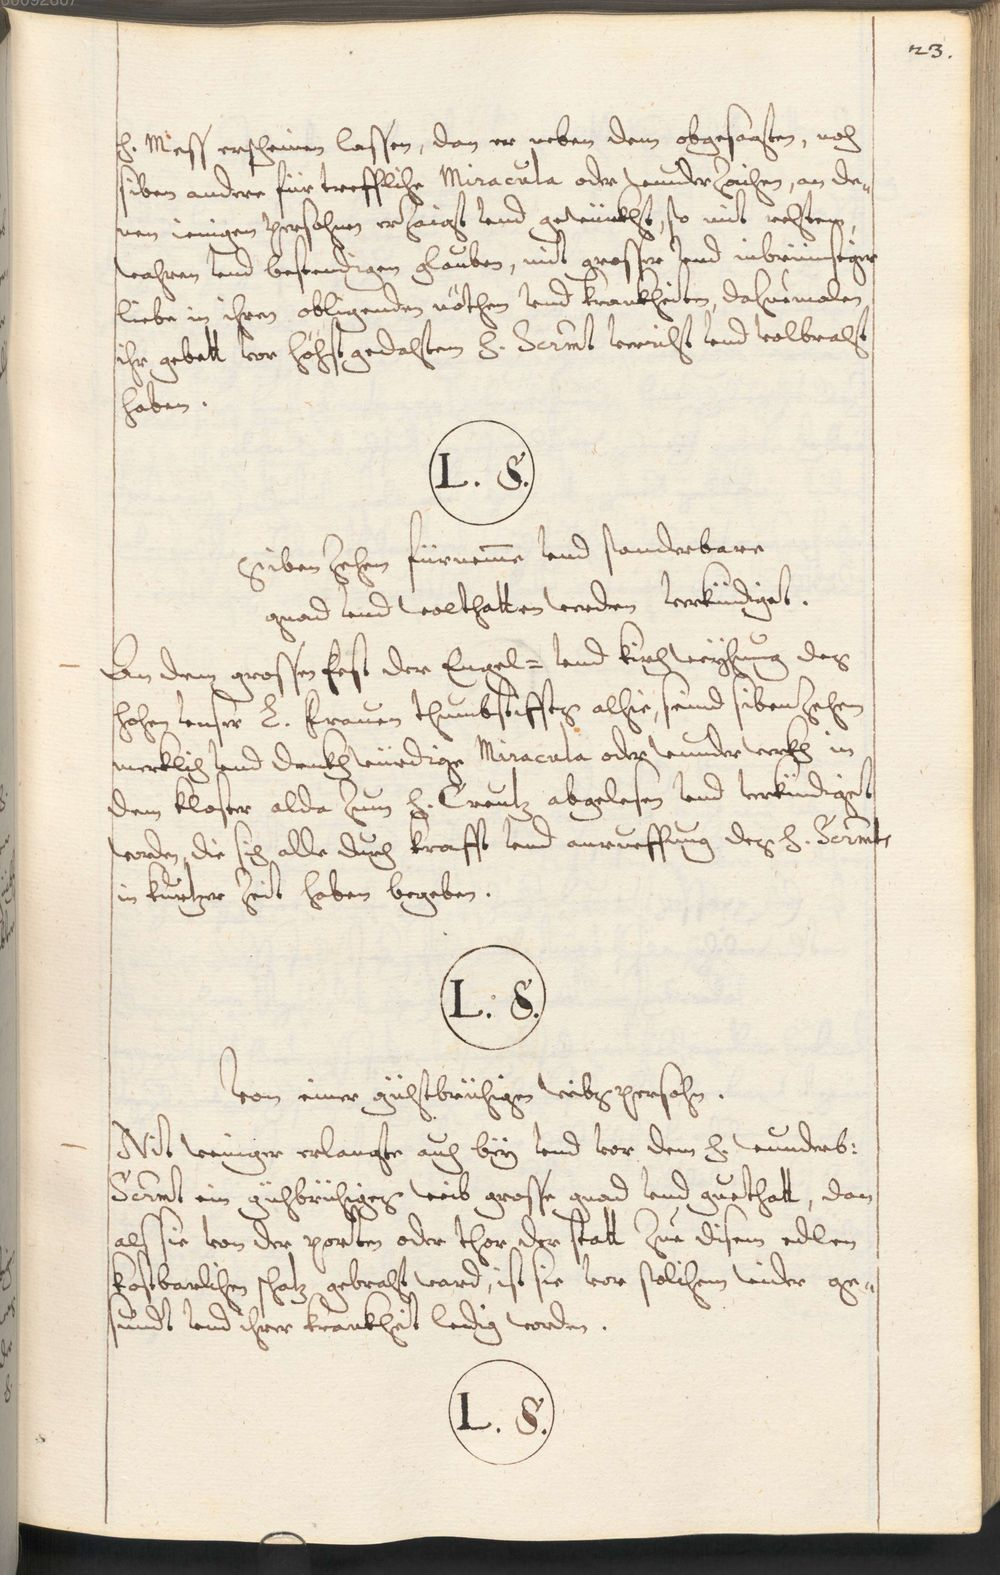 23.
h. Mess erscheinen lassen, dan er neben dem obgesagten, noch
siben andere fürtreffliche Miracula oder wunderzaichen, an de„
nen ienigen persohnen erzaigt vnd gewürckht, so mit rechtem,
wahren vnd bestendigen glauben, mit grosser vnd inbrünstiger
liebe in ihren obligenden nöthen vnd kranckheiten, dazuemalen
ihr gebett vor höchstgedachtem h. Scrmt verricht vnd volbracht
haben.
L. S.
Sibenzehen fürneme vnd sonderbare
gnad vnd wolthatten werden verkündiget.
An dem grossen fest der Engel= vnd kirchweyhung des
hohen vnser L. frauen thumbstiffts alhie, seind sibenzehen
mercklich vnd denckhwürdige Miracula oder wunderwerckh in
dem kloster alda zum h. Creutz abgelesen vnd verkündiget
worden, die sich alle durch krafft vnd anrueffung des h. Scrmts
in kurtzer zeit haben begeben.
L. S.
Von einer gichtbrüchigen weibspersohn.
Nit weniger erlangte auch bey vnd vor dem h. wunderb:
Scrmt ein gichbrüchiges weib grosse gnad vnd guethatt, dan
als sie von der porten oder thor der statt zue disem edlen
kostbarlichen schatz gebracht ward, ist sie vor solichem wider ge„
sundt vnd ihrer kranckheit ledig worden.
L. S.